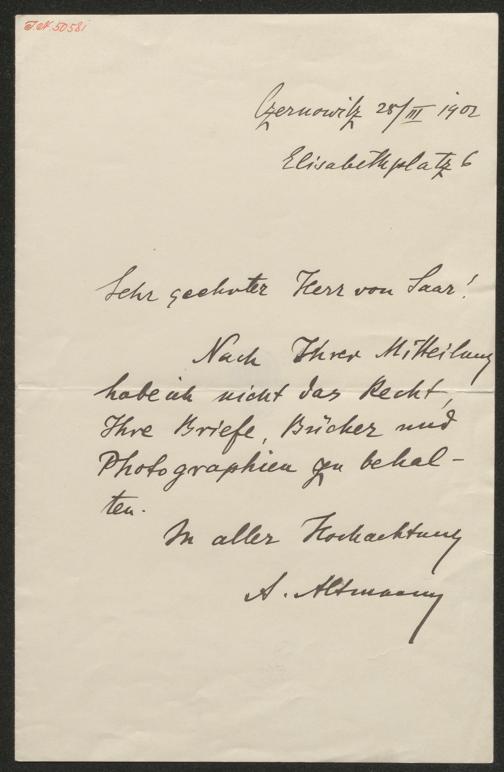 J.N. 50581
Czernowitz 28/III 1902
Elisabethplatz 6
Sehr geehrter Herr von Saar!
Nach Ihrer Mitteilung
habe ich nicht das Recht,
Ihre Briefe, Bücher und
Photographien zu behal-
ten.
In aller Hochachtung
A. Altmann